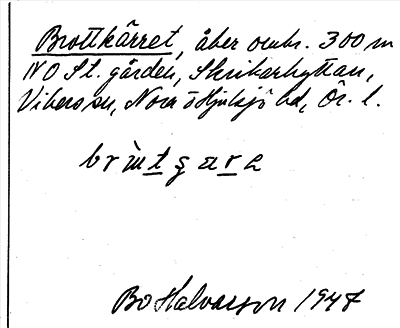 Brottkärret, åker omkr. 300 m
NO St. gården, Skrikarhyttan,
Vikers sn, Nora o Hjulsjö hd, Ör. l.
Bo Halvarsson 1947